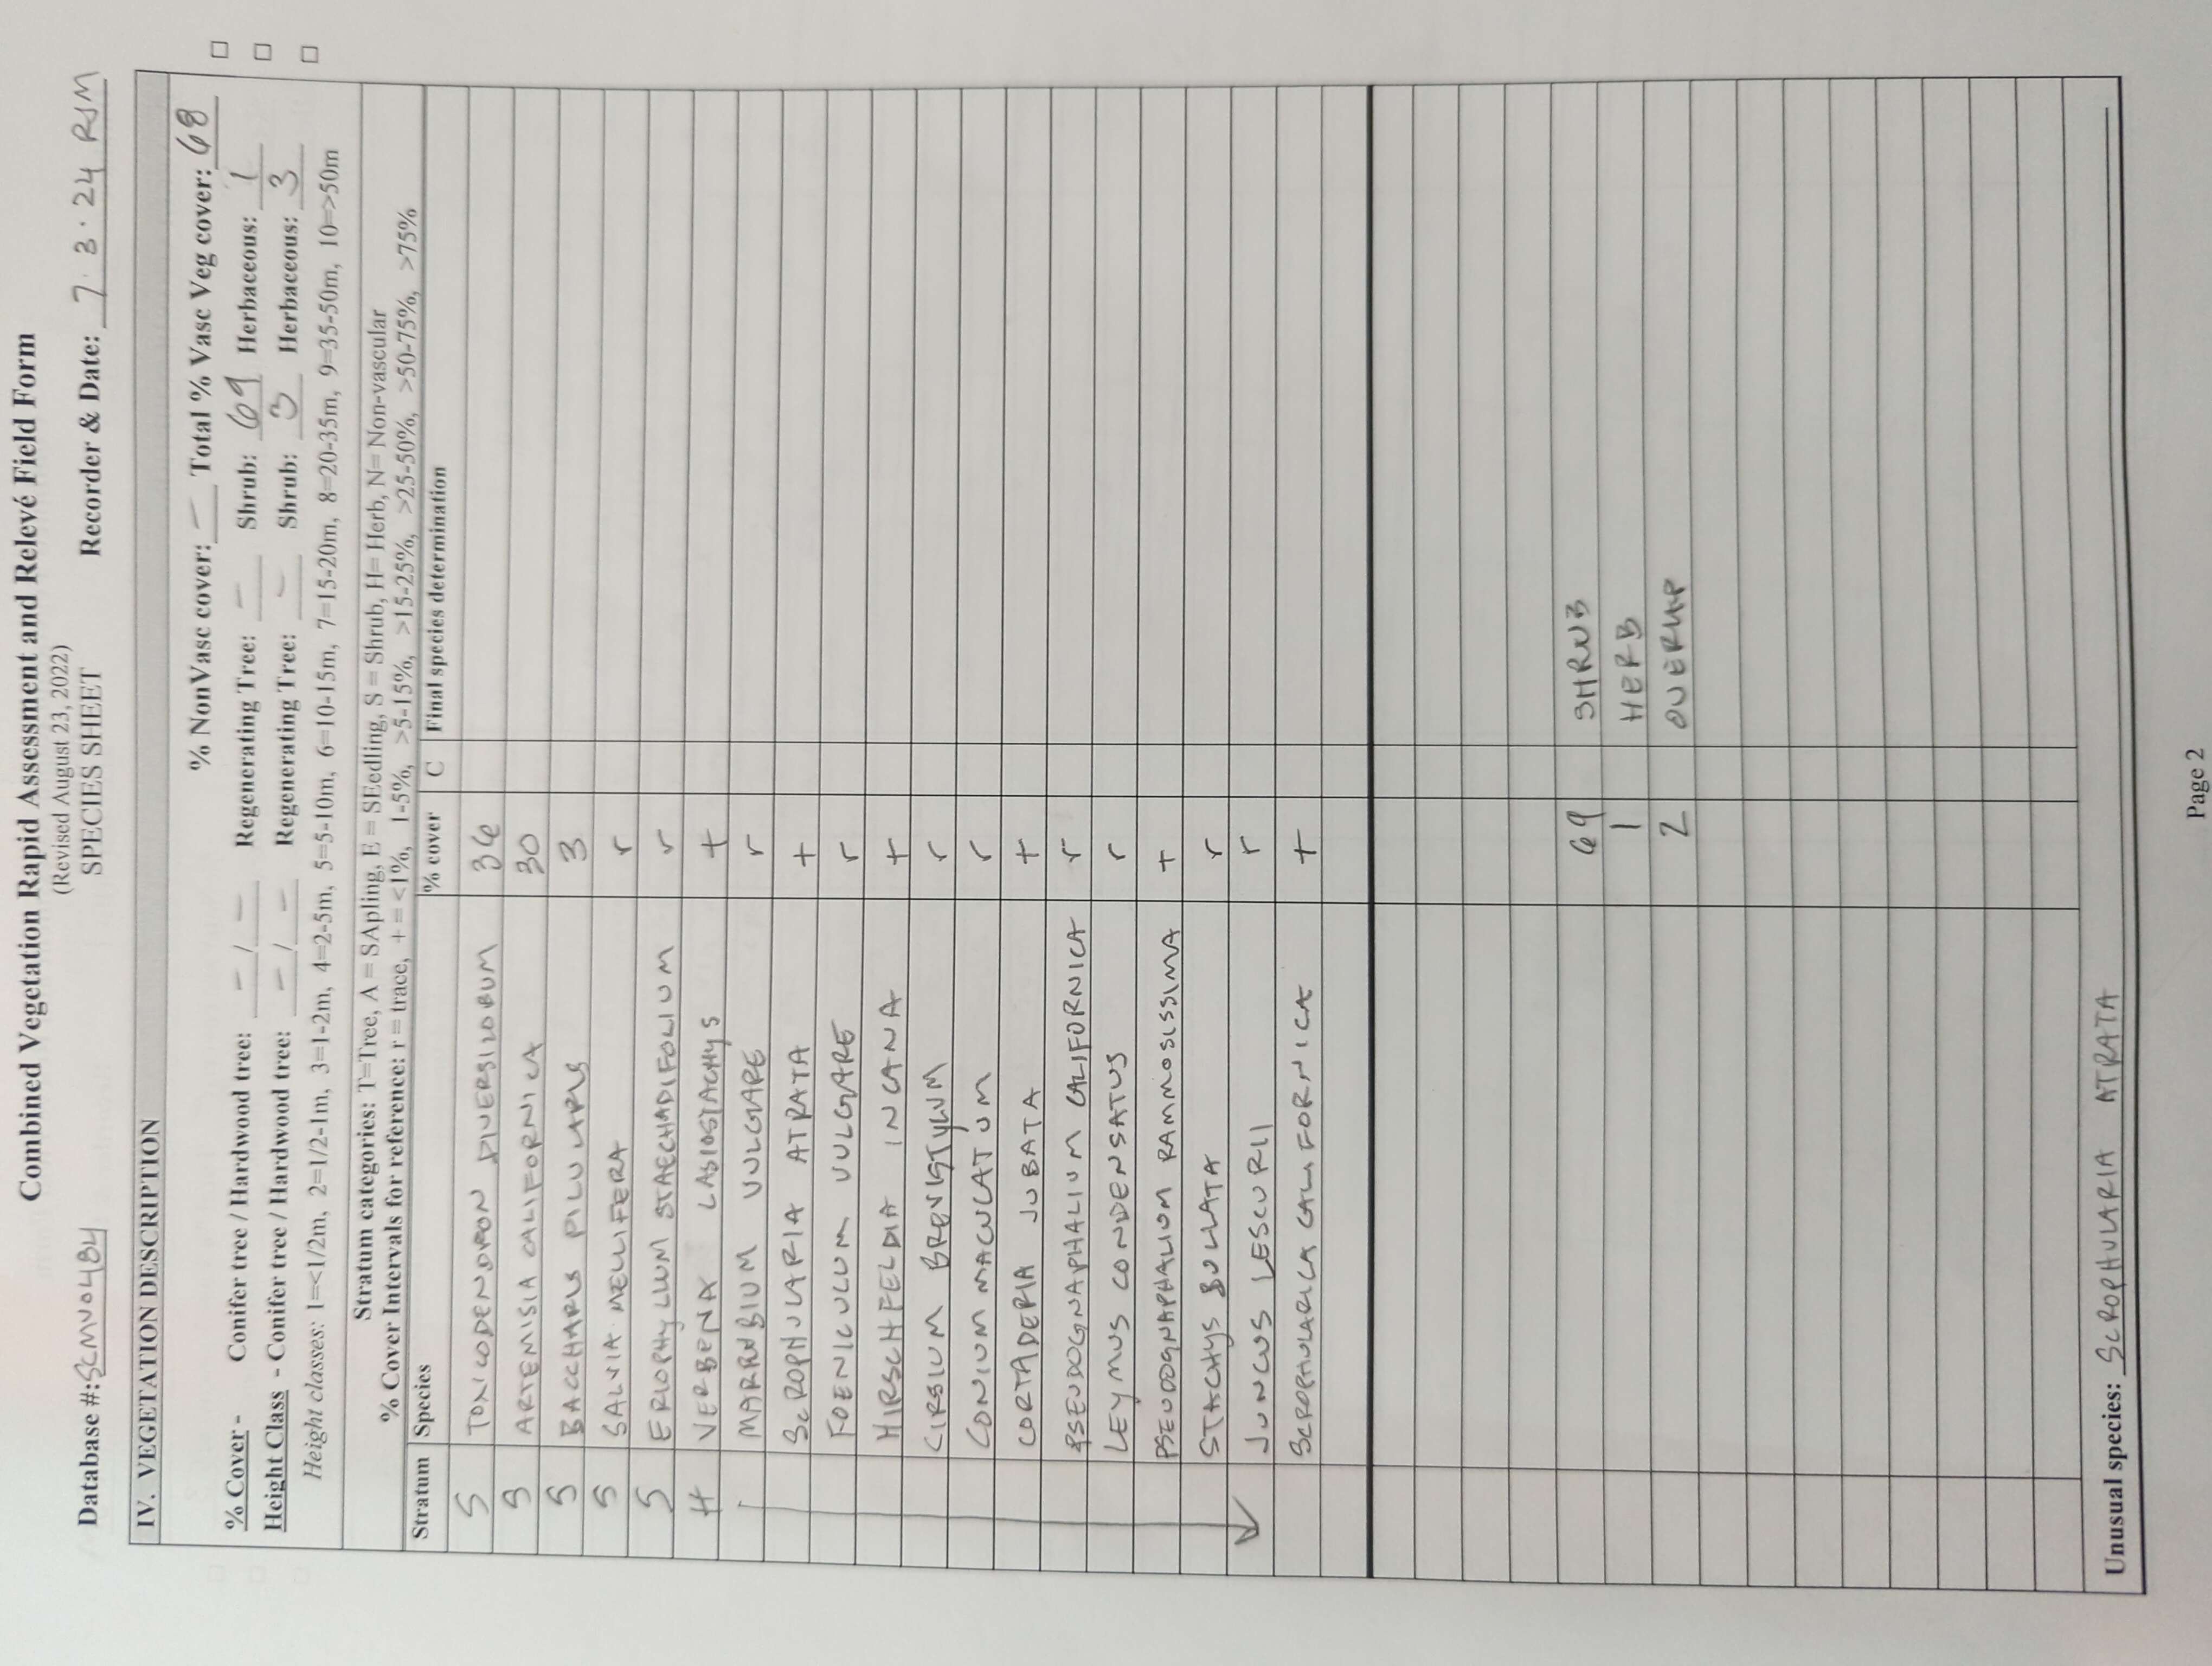 Combined Vegetation Rapid Assessment and Relevé Field Form
(Revised August 23, 2022)
SPECIES SHEET
Database #: SCMV0484 Recorder & Date: 7.3.24 RJM
IV. VEGETATION DESCRIPTION
% NonVasc cover: — Total % Vasc Veg cover: 68
% Cover - Conifer tree / Hardwood tree: — / — Regenerating Tree: — Shrub: 69 Herbaceous: 1
Height Class - Conifer tree / Hardwood tree: — / — Regenerating Tree: — Shrub: 3 Herbaceous: 3
Height classes: 1=<1/2m, 2=1/2-1m, 3=1-2m, 4=2-5m, 5=5-10m, 6=10-15m, 7=15-20m, 8=20-35m, 9=35-50m, 10=>50m
Stratum categories: T=Tree, A = SApling, E = SEedling, S = Shrub, H= Herb, N= Non-vascular
% Cover Intervals for reference: r = trace, + = <1%, 1-5%, >5-15%, >15-25%, >25-50%, >50-75%, >75%
Stratum Species % cover C Final species determination
S TOXICODENDRON DIVERSILOBUM 36
S ARTEMISIA CALIFORNICA 30
S BACCHARIS PILULARIS 3
S SALVIA MELLIFERA r
S ERIOPHYLLUM STAECHADIFOLIUM r
H VERBENA LASIOSTACHYS +
MARRUBIUM VULGARE r
SCROPHULARIA ATRATA +
FOENICULUM VULGARE r
HIRSCHFELDIA INCANA +
CIRSIUM BREVISTYLUM r
CONIUM MACULATUM r
CORTADERIA JUBATA +
PSEUDOGNAPHALIUM CALIFORNICA r
LEYMUS CONDENSATUS r
PSEUDOGNAPHALIUM RAMMOSISSIMA +
STACHYS BULLATA r
JUNCUS LESCURII r
SCROPHULARICA CALIFORNICA +
69 SHRUB
1 HERB
2 OVERLAP
Unusual species: SCROPHULARIA ATRATA
Page 2